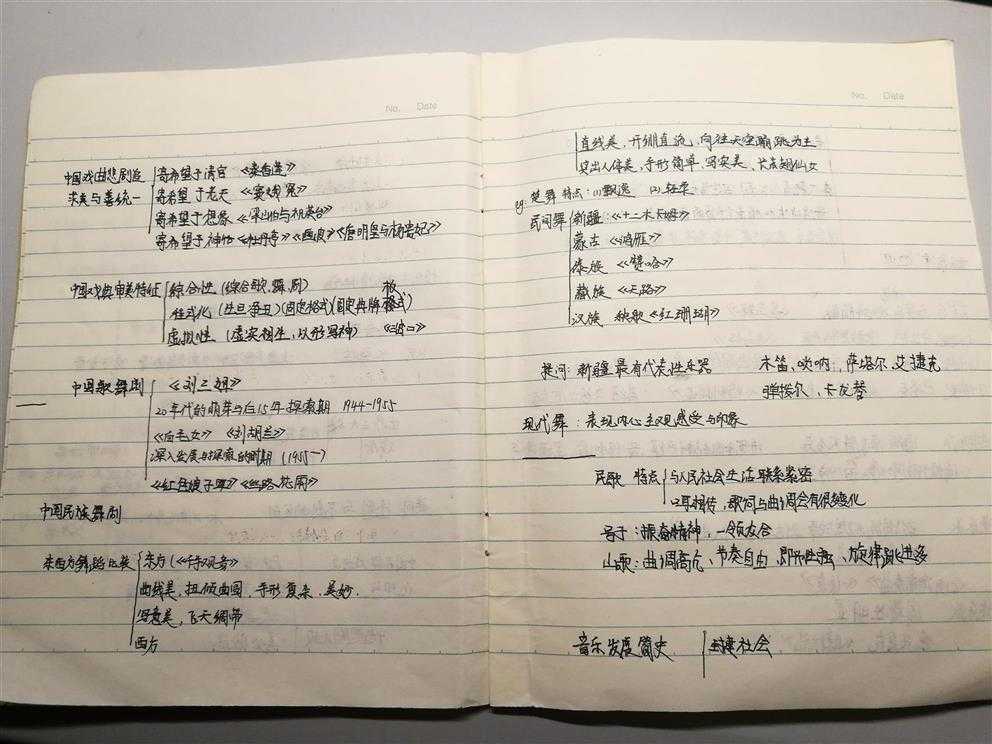 No. Date
中国戏曲悲剧追 寄希望于清官 《秦香莲》
求美与善统一 寄希望于老天 《窦娥冤》
寄希望于想像 《梁山伯与祝英台》
寄希望于神怪《牡丹亭》《画皮》《唐明皇与杨贵妃》
中国戏典审美特征 综合性 (综合歌、舞、剧) 板
程式化 (生旦净丑)(固定格式)(固定典牌格式)
虚拟性 (虚实相生,以形写神)
中国歌舞剧 《刘三姐》
20年代的萌芽与后15年探索期 1944-1955
《白毛女》 《刘胡兰》
深入发展与探索的时期 (1955-)
《红色娘子军》《丝路花雨》
中国民族舞剧
东西方舞蹈比较 东方 (《千手观音》
曲线美,扭倾曲圆,手形复杂,美妙.
写意美,飞天绸带
西方
No. Date
直线美,开绷直 向往天空蹦跳为主
突出人体美,手形简单,写实美,长着翅仙女
eg: 楚舞 特点: (1)飘逸 (2)轻柔
民间舞 新疆:《十二木卡姆》
蒙古 《鸿雁》
傣族 《赞哈》
藏族 《天路》
汉族 秧歌《红珊瑚》
提问: 新疆最有代表性乐器 木笛、唢呐、萨塔尔、艾捷克
弹拨尔、卡龙等
现代舞: 表现内心主观感受与印象
民歌 特点 与人民社会生活联系紧密
口耳相传,歌词与曲调会有很多变化
号子: 振奋精神,一领众合
山歌: 曲调高亢、节奏自由、即兴性强、旋律跳进多
音乐发展简史 封建社会